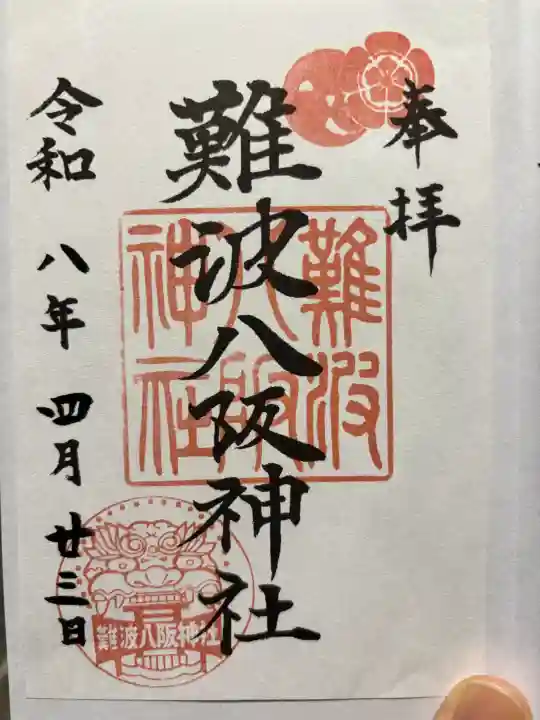 奉拝
難波八阪神社
難波
八阪
神社
令和 八年 四月 廿三日
難波八阪神社